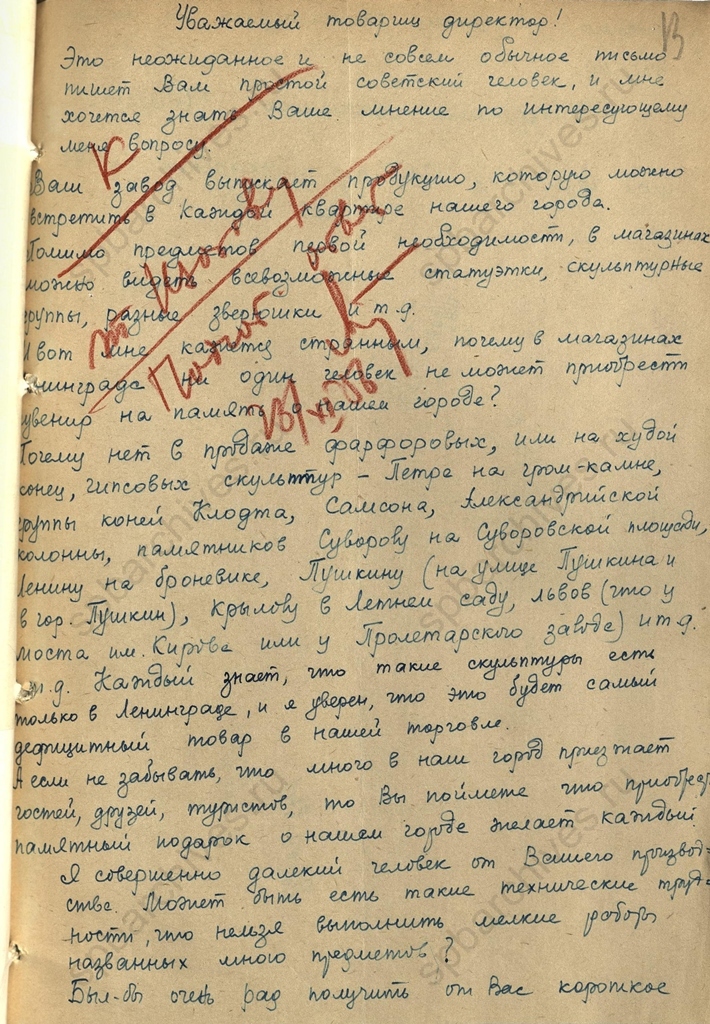 Уважаемый товарищ директор!
13
Это неожиданное и не совсем обычное письмо
пишет Вам простой советский человек, и мне
хочется знать Ваше мнение по интересующему
меня вопросу.
Ваш завод выпускает продукцию, которую можно
встретить в каждой квартире нашего города.
Помимо предметов первой необходимост, в магазинах
можно видеть всевозможные статуэтки, скульптурные
группы, разные зверюшки и т.д.
И вот мне кажется странным, почему в магазинах
нинграда ни один человек не может приобрести
увенир на память о нашем городе?
Почему нет в продаже фарфоровых, или на худой
конец, гипсовых скульптур – Петра на гром-камне,
группы коней Клодта, Самсона, Александрийской
колонны, памятников Суворову на Суворовской площади,
Ленину на броневике, Пушкину (на улице Пушкина и
в гор. Пушкин), Крылову в Летнем саду, львов (что у
моста им. Кирова или у Пролетарского завода) и т.д.
и т.д. Каждый знает, что такие скульптуры есть
только в Ленинграде, и я уверен, что это будет самый
дефицитный товар в нашей торговле.
А если не забывать, что много в наш город приезжает
гостей, друзей, туристов, то Вы поймете что приобрес
памятный подарок о нашем городе желает каждый.
Я совершенно далекий человек от Вашего производ=
ства. Может быть есть такие технические труд=
ности, что нельзя выполнить мелкие работы
названных мною предметов?
Был-бы очень рад получить от Вас короткое
К
spbarchives.ru